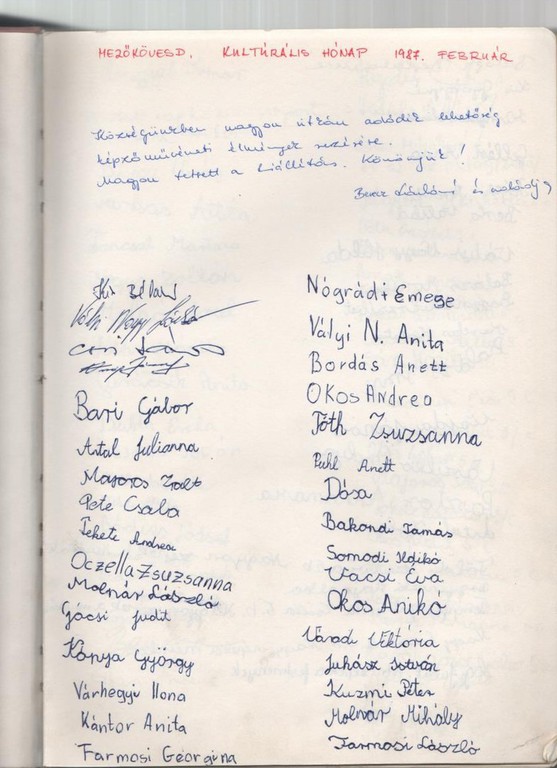 MEZŐKÖVESD. KULTÚRÁLIS HÓNAP 1987. FEBRUÁR
Községünkben nagyon ritkán adódik lehetőség
képzőművészeti élmények
Nagyon tetszett a kiállítás. Köszönjük!
és családja
Kis Béláné
Nagy
Bari Gábor
Antal Julianna
Majoros Zsolt
Pete Csaba
Fekete Andrea
Oczella Zsuzsanna
Molnár László
Gácsi Judit
Kónya György
Várhegyi Ilona
Kántor Anita
Farmosi Georgina
Nógrádi Emese
Vályi N. Anita
Bordás Anett
Okos Andrea
Tóth Zsuzsanna
Puhl Anett
Dósa
Bakondi Tamás
Somodi Ildikó
Vácsi Éva
Okos Anikó
Váradi Viktória
Juhász István
Kuzmi Péter
Molnár Mihály
Farmosi László